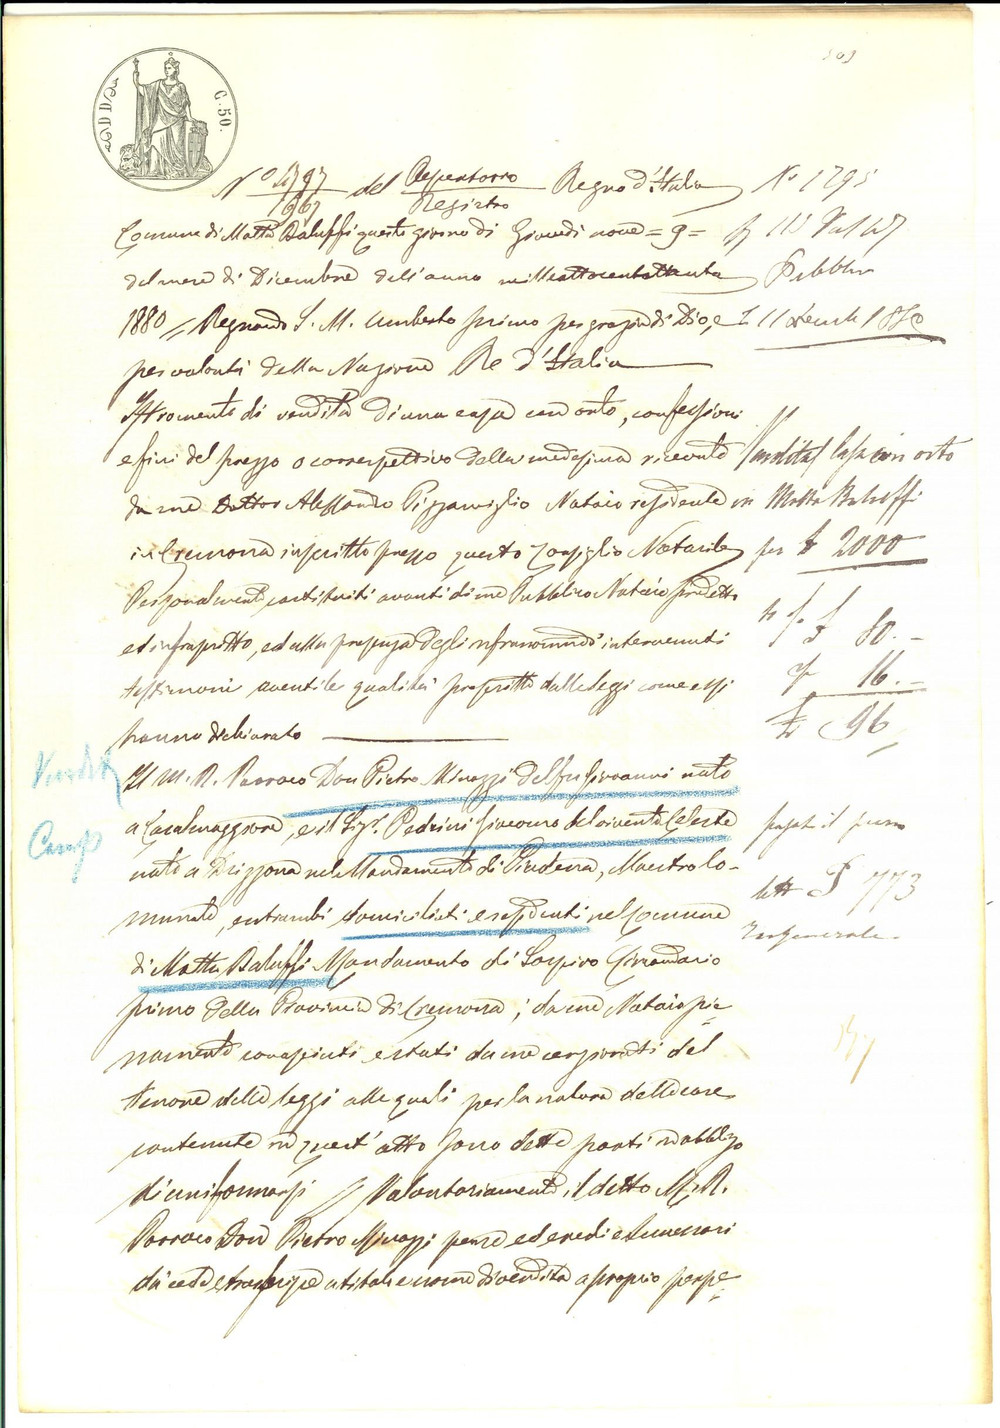 C. 50.
N.° 4797 del Repertorio Regno d'Italia
1967 Registro
Comune di Motta Baluffi questo giorno di Giovedì nove = 9 =
del mese di Dicembre dell'anno milleottocentottanta
1880 // Regnando S. M. Umberto primo per grazia di Dio, e
per volontà della Nazione Re d'Italia
Istromento di vendita di una casa con orto, confessioni
e fini del prezzo o correspettivo della medesima ricevuto
da me Dottor Alessandro Pizzamiglio Notaio residente in
in Cremona inscritto presso questo Consiglio Notarile
Personalmente costituiti avanti di me Pubblico Notaio predetto
ed infrascritto, ed alla presenza degli infranominandi intervenuti
testimoni aventi le qualità prescritte dalle leggi come essi
hanno dichiarato
Il M. R. Parroco Don Pietro Minazzi del fu Giovanni nato
a Casalmaggiore, e il Sig.r Pedrini Giacomo del vivente Celeste
nato a Drizzona nel Mandamento di Piadena, Maestro Co-
munale, entrambi domiciliati e residenti nel Comune
di Motta Baluffi Mandamento di Sospiro Circondario
primo della Provincia di Cremona; da me Notaio pie
namente conosciuti e stati da me cerziorati del
tenore delle leggi alle quali per la natura delle cose
contenute in quest'atto sono dette parti in obbligo
di uniformarsi // Volontariamente, il detto M. R.
Parroco Don Pietro Minazzi per sé ed eredi e successori
dà cede e trasferisce a titolo e nome di vendita a proprio perpe
N.° 1795
Pubbli
1880
Vendita Casa con orto
in Motta Baluffi
per £ 2000
£ 80. -
16. -
£ 96
£ 773
Vendita
Comp